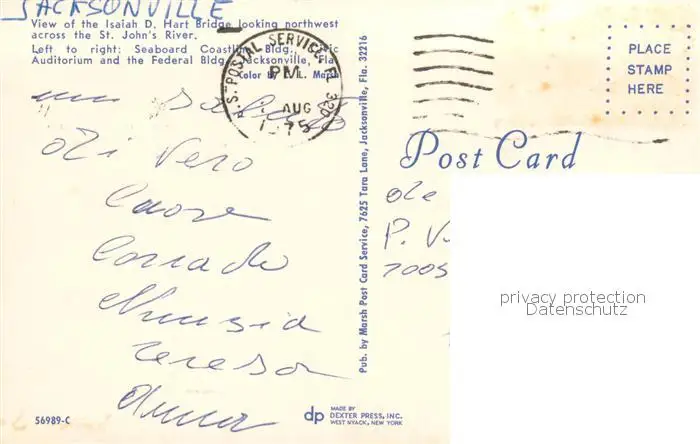 JACKSONVILLE
View of the Isaiah D. Hart Bridge looking northwest
across the St. John's River.
Left to right: Seaboard Coastline Bldg.
Auditorium and the Federal Bldg. Jacksonville, Fla.
Color by L. Marsh
U.S. POSTAL SERVICE FL 320
PM
AUG
1975
un saluto
di vero
cuore
Corrado
Nunzia
Teresa
Anna
56989-C
dp
MADE BY
DEXTER PRESS, INC.
WEST NYACK, NEW YORK
Pub. by Marsh Post Card Service, 7625 Tara Lane, Jacksonville, Fla. 32216
PLACE
STAMP
HERE
Post Card
P. V.
7005
privacy protection
Datenschutz